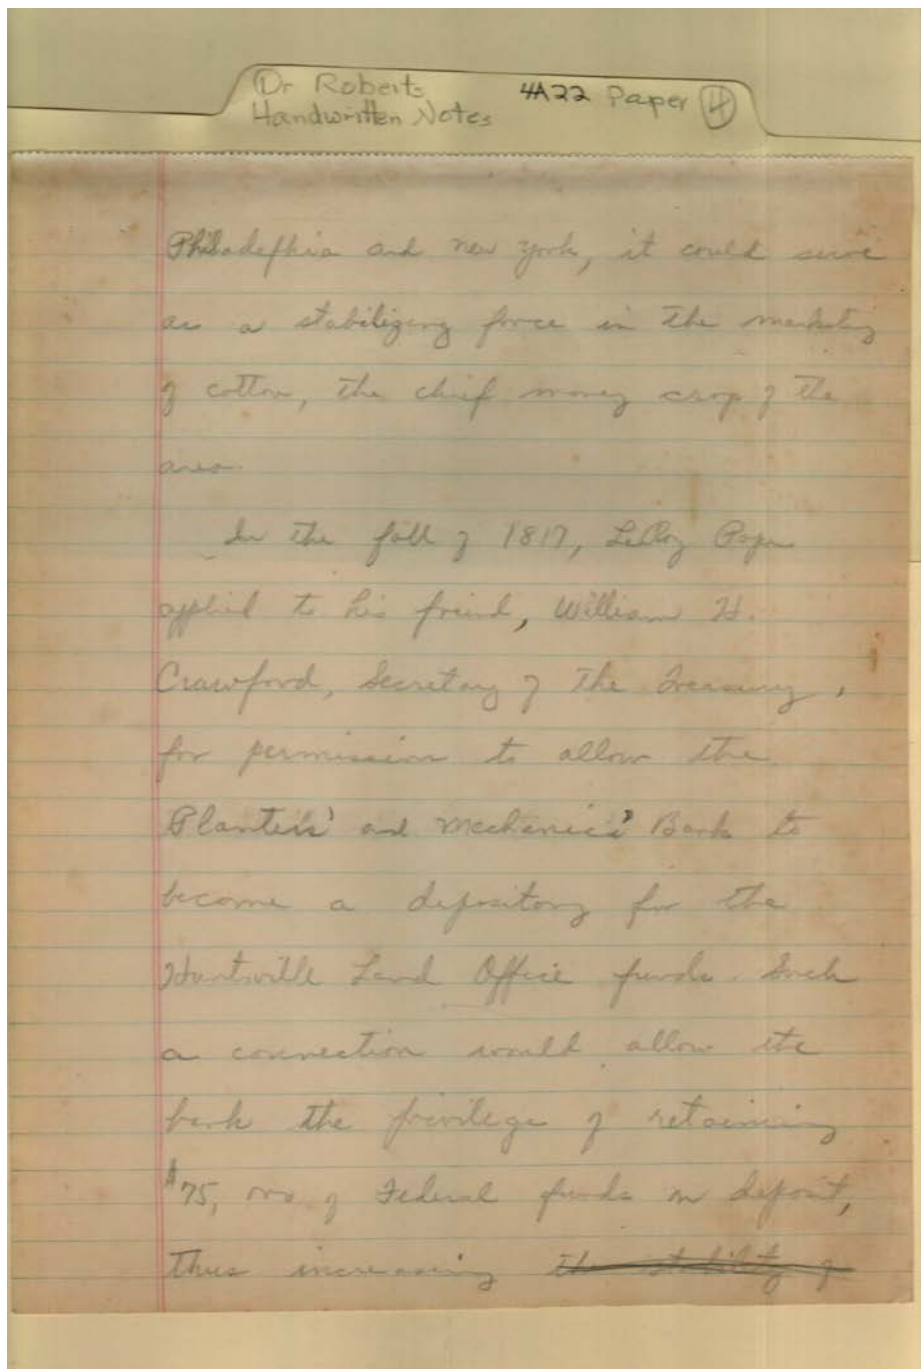 Dr Roberts
Handwritten Notes
4A22 Paper 4
Philadephia and New York, it could serve
as a stabilizing force in the marketing
of cotton, the chief money crop of the
area.
In the fall of 1817, LeRoy Pope
applied to his friend, William H.
Crawford, Secretary of the Treasury,
for permission to allow the
Planters' and Mechanics' Bank to
become a depository for the
Huntsville Land Office funds. Such
a connection would allow the
bank the privilege of retaining
$75, 000 of Federal funds on deposit,
thus increasing the stability of